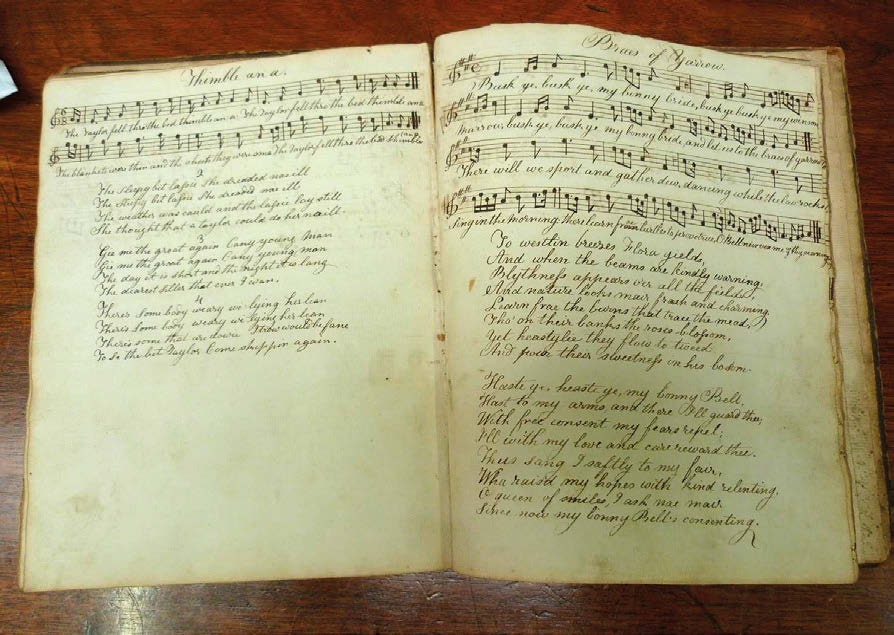 Thimble an a.
The Taylor fell thro the bed thimble an a. The Taylor fell thro the bed thimble an a
The blankets were thin and the sheets they were sma The Taylor fell thro the bed thimble an a
2
The sleepy bit lassie she dreaded nae ill
The sleepy bit lassie she dreaded nae ill
The weather was cauld and the lassie lay still
She thought that a taylor could do her na ill.
3
Gie me the groat again cany young man
Gie me the groat again cany young man
The day it is short and the night it is lang
The dearest siller that ever I wan.
4
There's some body weary wi' lying her lean
There's some body weary wi' lying her lean
There's some that are dowie I trow would be fane
To se the bit Taylor come skippin again.
Braes of Yarrow.
Busk ye, busk ye, my bonny bride, busk ye busk ye my winsom
marrow, busk ye, busk ye my bonny bride, and let us to the braes of yarrow,
There will we sport and gather dew, dancing while the lavrocks
sing in the morning there learn frae turtles to prove true, O Bell ne'er vex me
To westlin breezes Flora yields,
And when the beams are kindly warning,
Blythness appears o'er all the fields,
And nature looks mair fresh and charming.
Learn frae the burns that trace the mead,
Tho' on their banks the roses blossom,
Yet heastylie they flow to tweed
And pour their sweetness in his bosom.
Haste ye, heaste ye, my bonny Bell,
Hast to my arms, and there I'll guard thee,
With free consent my fears repel;
I'll with my love and care reward thee.
Thus sang I saftly to my fair,
Wha rais'd my hopes with kind relenting.
O queen of smiles, I ask nae mair
Since now my bonny Bell's consenting.